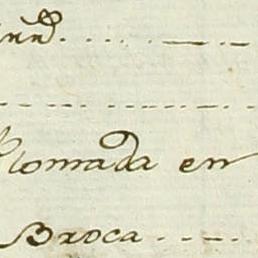 Plomada en
Broca